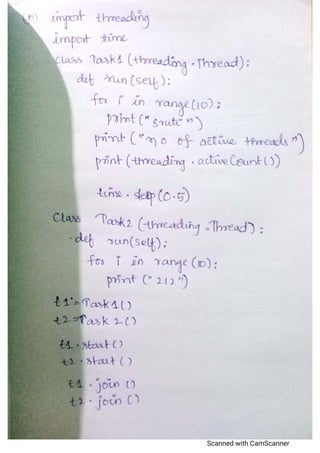 (10) import threading
import time
class Task1 (threading.Thread):
def run(self):
for i in range(10):
print("
print("no of active threads")
print (threading.activeCount())
time.sleep(0.5)
Class Task2 (threading.Thread):
def run(self):
for i in range(10):
print("212")
t1 = Task1()
t2 = Task2()
t1.start()
t2.start()
t1.join()
t2.join()
Scanned with CamScanner